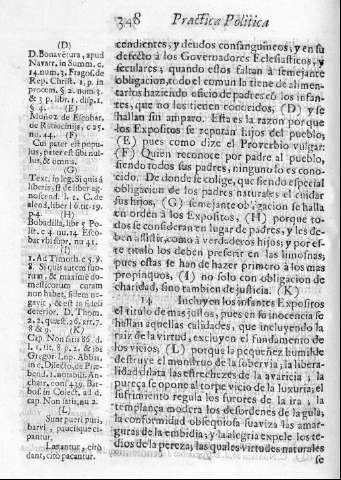 348 Practica Politica
(D)
D. Bonavétura, apud
Navarr. in Summ. c.
14. num. 3. Fragos. de
Rep. Christ. 1. p. in
procem. §. 2. num. 3.
& 3. p. libr. 1. disp. 1.
§. 3.
Muñoz de Escobar,
de Ratiocinijs, c. 25.
nu. 44. (F)
Cui pater est popu-
lus, pater est sibi nul-
lus, & omna.
(G)
Text. in leg. Si quis à
liberis, ff. de liber. ag-
noscend. l. 2. C. de
alend. liber. l. 6. tit. 19.
p. 4. (H)
Bobadilla, libr. Po-
lit. c. 4. nu. 14. Esco-
bar vbi supr. nu. 41.
(I)
1. Ad Timoth. c. 5. v.
8. Si quis autem suo-
rum, & maximè do-
mesticorum curam
non habet, fidem ne-
gavit, & est in fideli
deterior. D. Thom.
2. 2. quæst. 26. art. 7.
& 8. (K)
Cap. Non satis 86. d.
l. 1. tit. 8. p. 2. & ibi
Gregor. Lop. Abbas,
in c. Decrete, de Præ-
bend. 1. notabil. An-
char. cons. 439. Bar-
bos. in Colect. à d.
cap. Non satis, nu. 2.
(L)
Sunt pueri puri,
parvi, paucisque ci-
pantur.
Laxantur, citò
dant, citò pacantur.
cendientes, y deudos consanguineos, y en su
defecto à los Governadores Eclesiasticos, y
seculares; quando estos faltan à semejante
obligacion, todo el comun la tiene de alimen-
tarlos haziendo oficio de padres cõ los infan-
tes, que no los tienen conocidos, (D) y se
hallan sin amparo. Esta es la razon porque
los Expositos se reputan hijos del pueblo,
(E) pues como dize el Proverbio vulgar:
(F) Quien reconoce por padre al pueblo,
siendo todos sus padres, ninguno lo es cono-
cido. De donde se colige, que siendo especial
obligacion de los padres naturales el cuidar
sus hijos, (G) semejante obligacion se halla
en orden à los Expositos, (H) porque to-
dos se consideran en lugar de padres, y les de-
ben assistir, como à verdaderos hijos; y por es-
te titulo los deben preferir en las limosnas,
pues estas se han de hazer primero à los mas
propinquos, (I) no solo con obligacion de
charidad, sino tambien de justicia. (K)
14 Incluyen los infantes Expositos
el titulo de mas justos, pues en su inocencia se
hallan aquellas calidades, que incluyendo la
raiz de la virtud, excluyen el fundamento de
los vicios, (L) porque la pequeñez humilde
destruye el monstruo de la sobervia, la libera-
lidad dilata las estrechezes de la avaricia, la
pureza se opone al torpe vicio de la luxuria, el
sufrimiento regula los furores de la ira, la
templança modera los desordenes de la gula,
la conformidad obsequiosa suaviza las amar-
guras de la embidia; y la alegria expele los te-
dios de la pereza, las quales virtudes naturales
se